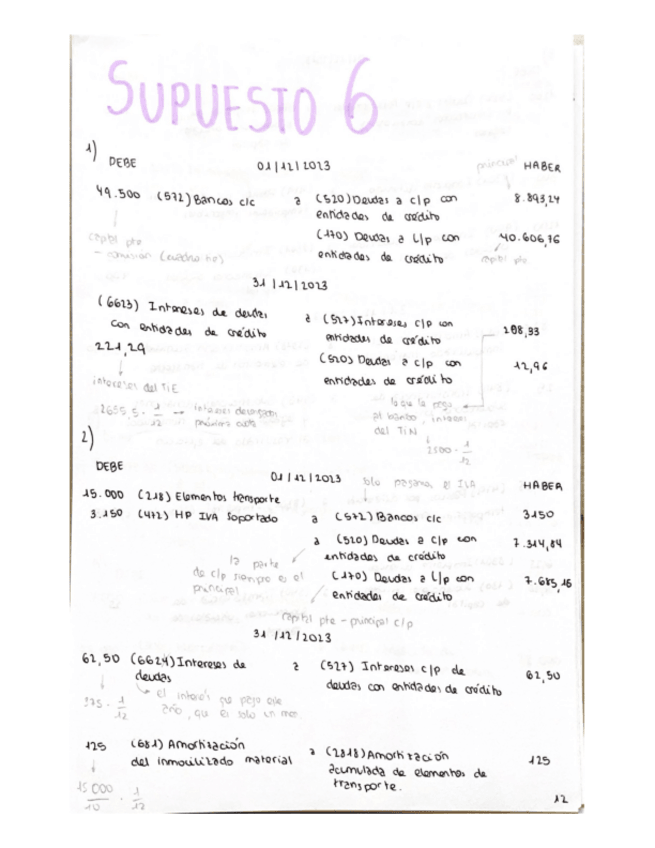 SUPUESTO 6
1)
DEBE 01/12/2023 principal HABER
49.500 (572) Bancos c/c a (520) Deudas a c/p con 8.893,24
entidades de crédito
(170) Deudas a L/p con 40.606,76
capital pte entidades de crédito capital pte
- comisión (cuadro tie)
31/12/2023
(6623) Intereses de deudas a (527) Intereses c/p con 208,33
con entidades de crédito entidades de crédito
221,29 (520) Deudas a c/p con 12,96
entidades de crédito
intereses del TIE lo que le pago
2655,5 · 1/12 → intereses devengados al banco, intereses
próxima cuota del TIN
2500 · 1/12
2)
DEBE
01/12/2023 solo pagamos el IVA HABER
15.000 (218) Elementos transporte
3.150 (472) HP IVA Soportado a (572) Bancos c/c 3150
a (520) Deudas a c/p con 7.314,84
la parte entidades de crédito
de c/p siempre es el (170) Deudas a L/p con 7.685,16
principal entidades de crédito
capital pte - principal c/p
31/12/2023
62,50 (6624) Intereses de a (527) Intereses c/p de 62,50
deudas deudas con entidades de crédito
el interés que pago este
· 1/12 año, que es solo un mes
125 (681) Amortización a (2818) Amortización 125
del inmovilizado material acumulada de elementos de
transporte.
15000/10 · 1/12
12